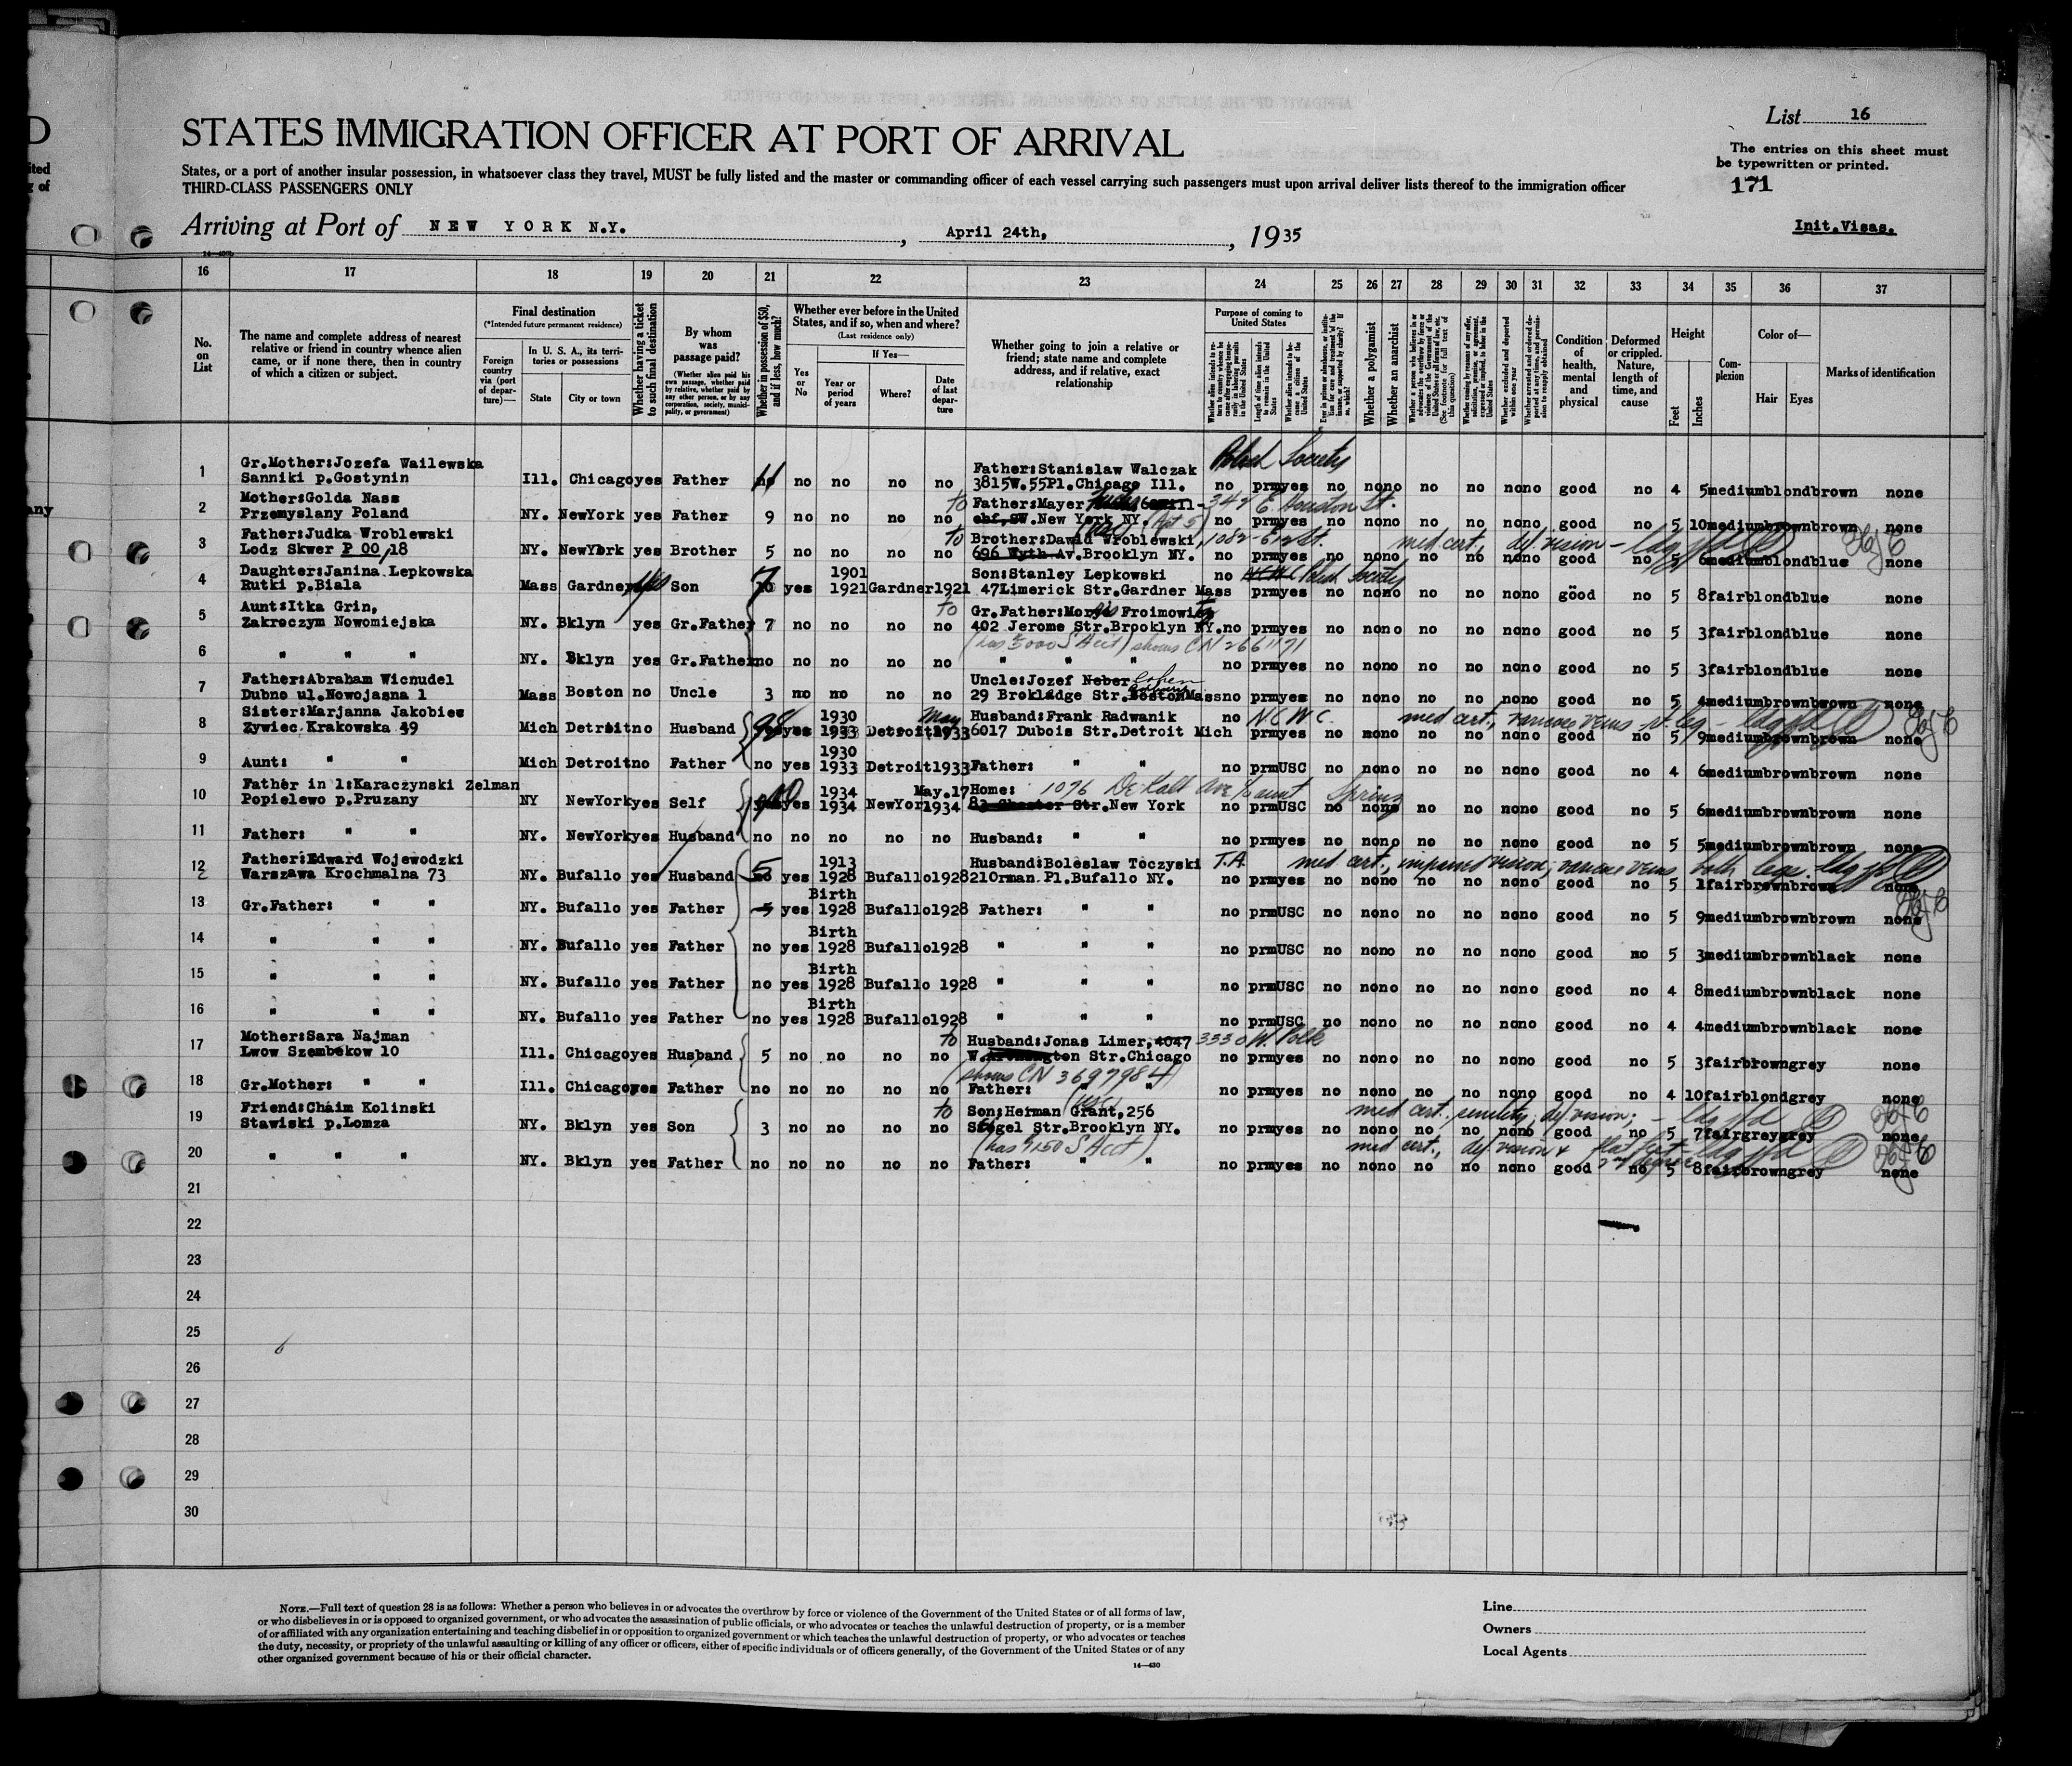 List 16
STATES IMMIGRATION OFFICER AT PORT OF ARRIVAL
The entries on this sheet must
be typewritten or printed.
States, or a port of another insular possession, in whatsoever class they travel, MUST be fully listed and the master or commanding officer of each vessel carrying such passengers must upon arrival deliver lists thereof to the immigration officer
THIRD-CLASS PASSENGERS ONLY
171
Arriving at Port of NEW YORK N.Y., April 24th, 1935
Init.Visas.
16 17 18 19 20 21 22 23 24 25 26 27 28 29 30 31 32 33 34 35 36 37
No. on List
The name and complete address of nearest relative or friend in country whence alien came, or if none there, then in country of which a citizen or subject.
Final destination
(*Intended future permanent residence)
Foreign country via (port of departure)—
In U. S. A., its territories or possessions
State City or town
Whether having a ticket to such final destination
By whom was passage paid?
(Whether alien paid his own passage, whether paid by relative, whether paid by any other person, or by any corporation, society, municipality, or government)
Whether in possession of $50, and if less, how much?
Whether ever before in the United States, and if so, when and where?
(Last residence only)
Yes or No
If Yes—
Year or period of years
Where?
Date of last departure
Whether going to join a relative or friend; state name and complete address, and if relative, exact relationship
Purpose of coming to United States
Length of time alien intends to remain in the United States
Whether alien intends to become a citizen of the United States
Whether a polygamist
Whether an anarchist
Condition of health, mental and physical
Deformed or crippled. Nature, length of time, and cause
Height
Feet Inches
Complexion
Color of—
Hair Eyes
Marks of identification
Polish Society
1 Gr.Mother:Jozefa Wailewska Father:Stanislaw Walczak
Sanniki p.Gostynin Ill. Chicago yes Father no no no no 3815W.55Pl.Chicago Ill. no prm yes no no no no no no no good no 4 5 medium blond brown none
2 Mother:Golda Nass to Father:Mayer 342 E. Houston St.
Przemyslany Poland NY. NewYork yes Father 9 no no no no New York NY. no prm yes no no no no no no no good no 5 10 medium brown brown none
3 Father:Judka Wroblewski to Brother:Dawid Wroblewski, med cert. def. vision
Lodz Skwer P 00/18 NY. NewYork yes Brother 5 no no no no 696 Wyth Av.Brooklyn NY. no prm yes no no no no no no no good no 5 6 medium blond blue none
4 Daughter:Janina Lepkowska 1901 Son:Stanley Lepkowski no Polish Society
Rutki p.Biala Mass Gardner yes Son 7 10 yes 1921 Gardner 1921 47Limerick Str.Gardner Mass prm yes no no no no no no no good no 5 8 fair blond blue none
5 Aunt:Itka Grin, to Gr.Father:Morris Froimowitz
Zakroczym Nowomiejska NY. Bklyn yes Gr.Father 7 no no no no 402 Jerome Str.Brooklyn NY. no prm yes no no no no no no no good no 5 3 fair blond blue none
(has $000 S Acct) shows CN 2661171
6 " " " NY. Bklyn yes Gr.Father no no no no no " " " no prm yes no no no no no no no good no 5 3 fair blond blue none
7 Father:Abraham Wicnudel Uncle:Jozef Neber Cohen
Dubno ul.Nowojasna 1 Mass Boston no Uncle 3 no no no no 29 Brokladge Str.Boston Mass no prm yes no no no no no no no good no 5 4 medium brown brown none
8 Sister:Marjanna Jakobiec 1930 May Husband:Frank Radwanik no NCWC. med cert., varicose veins
Zywiec Krakowska 49 Mich Detroit no Husband 98 yes 1933 Detroit 1933 6017 Dubois Str.Detroit Mich prm yes no no no no no no no good no 5 9 medium brown brown none
9 Aunt: " " 1930
Mich Detroit no Father no yes 1933 Detroit 1933 Father: " " no prm USC no no no no no no no good no 4 6 medium brown brown none
10 Father in l:Karaczynski Zelman 1934 May.17 Home: 1096 DeKalb Ave
Popielewo p.Pruzany NY NewYork yes Self yes 1934 NewYor 1934 83 Chester Str.New York no prm USC no no no no no no no good no 5 6 medium brown brown none
11 Father: " " NY. NewYork yes Husband no no no no no Husband: " " no prm yes no no no no no no no good no 5 5 medium brown brown none
12 Father:Edward Wojewodzki 1913 Husband:Boleslaw Toczyski T.A. med cert., impaired vision, varicose veins both legs.
Warszawa Krochmalna 73 NY. Bufallo yes Husband 5 no yes 1928 Bufallo 1928 21Orman Pl.Bufallo NY. no prm yes no no no no no no no good no 5 1 fair brown brown none
13 Gr.Father: " " Birth
NY. Bufallo yes Father 5 yes 1928 Bufallo 1928 Father: " " no prm USC no no no no no no no good no 5 9 medium brown brown none
14 " " " Birth
NY. Bufallo yes Father no yes 1928 Bufallo 1928 " " " no prm USC no no no no no no no good no 5 3 medium brown black none
15 " " " Birth
NY. Bufallo yes Father no yes 1928 Bufallo 1928 " " " no prm USC no no no no no no no good no 4 8 medium brown black none
16 " " " Birth
NY. Bufallo yes Father no yes 1928 Bufallo 1928 " " " no prm USC no no no no no no no good no 4 4 medium brown black none
17 Mother:Sara Najman to Husband:Jonas Limer,4047 3330 W. Polk
Lwow Szembekow 10 Ill. Chicago yes Husband 5 no no no no Str.Chicago no prm yes no no no no no no no good no 5 3 fair brown grey none
(shows CN 3697984)
18 Gr.Mother: " " Ill. Chicago yes Father no no no no no Father: " " no prm yes no no no no no no no good no 4 10 fair blond grey none
19 Friend:Chaim Kolinski to Son:Herman Grant,256 med cert., senility, def. vision;
Stawiski p.Lomza NY. Bklyn yes Son 3 no no no no Stegel Str.Brooklyn NY. no prm yes no no no no no no no good no 5 7 fair grey grey none
(has $1150 S Acct) med cert., def. vision & flat feet 2nd degree
20 " " " NY. Bklyn yes Father no no no no no Father: " " no prm yes no no no no no no no good no 5 8 fair brown grey none
21
22
23
24
25
26
27
28
29
30
NOTE.—Full text of question 28 is as follows: Whether a person who believes in or advocates the overthrow by force or violence of the Government of the United States or of all forms of law,
or who disbelieves in or is opposed to organized government, or who advocates the assassination of public officials, or who advocates or teaches the unlawful destruction of property, or is a member
of or affiliated with any organization entertaining and teaching disbelief in or opposition to organized government or which teaches the unlawful destruction of property, or who advocates or teaches
the duty, necessity, or propriety of the unlawful assaulting or killing of any officer or officers, either of specific individuals or of officers generally, of the Government of the United States or of any
other organized government because of his or their official character.
14—430
Line
Owners
Local Agents